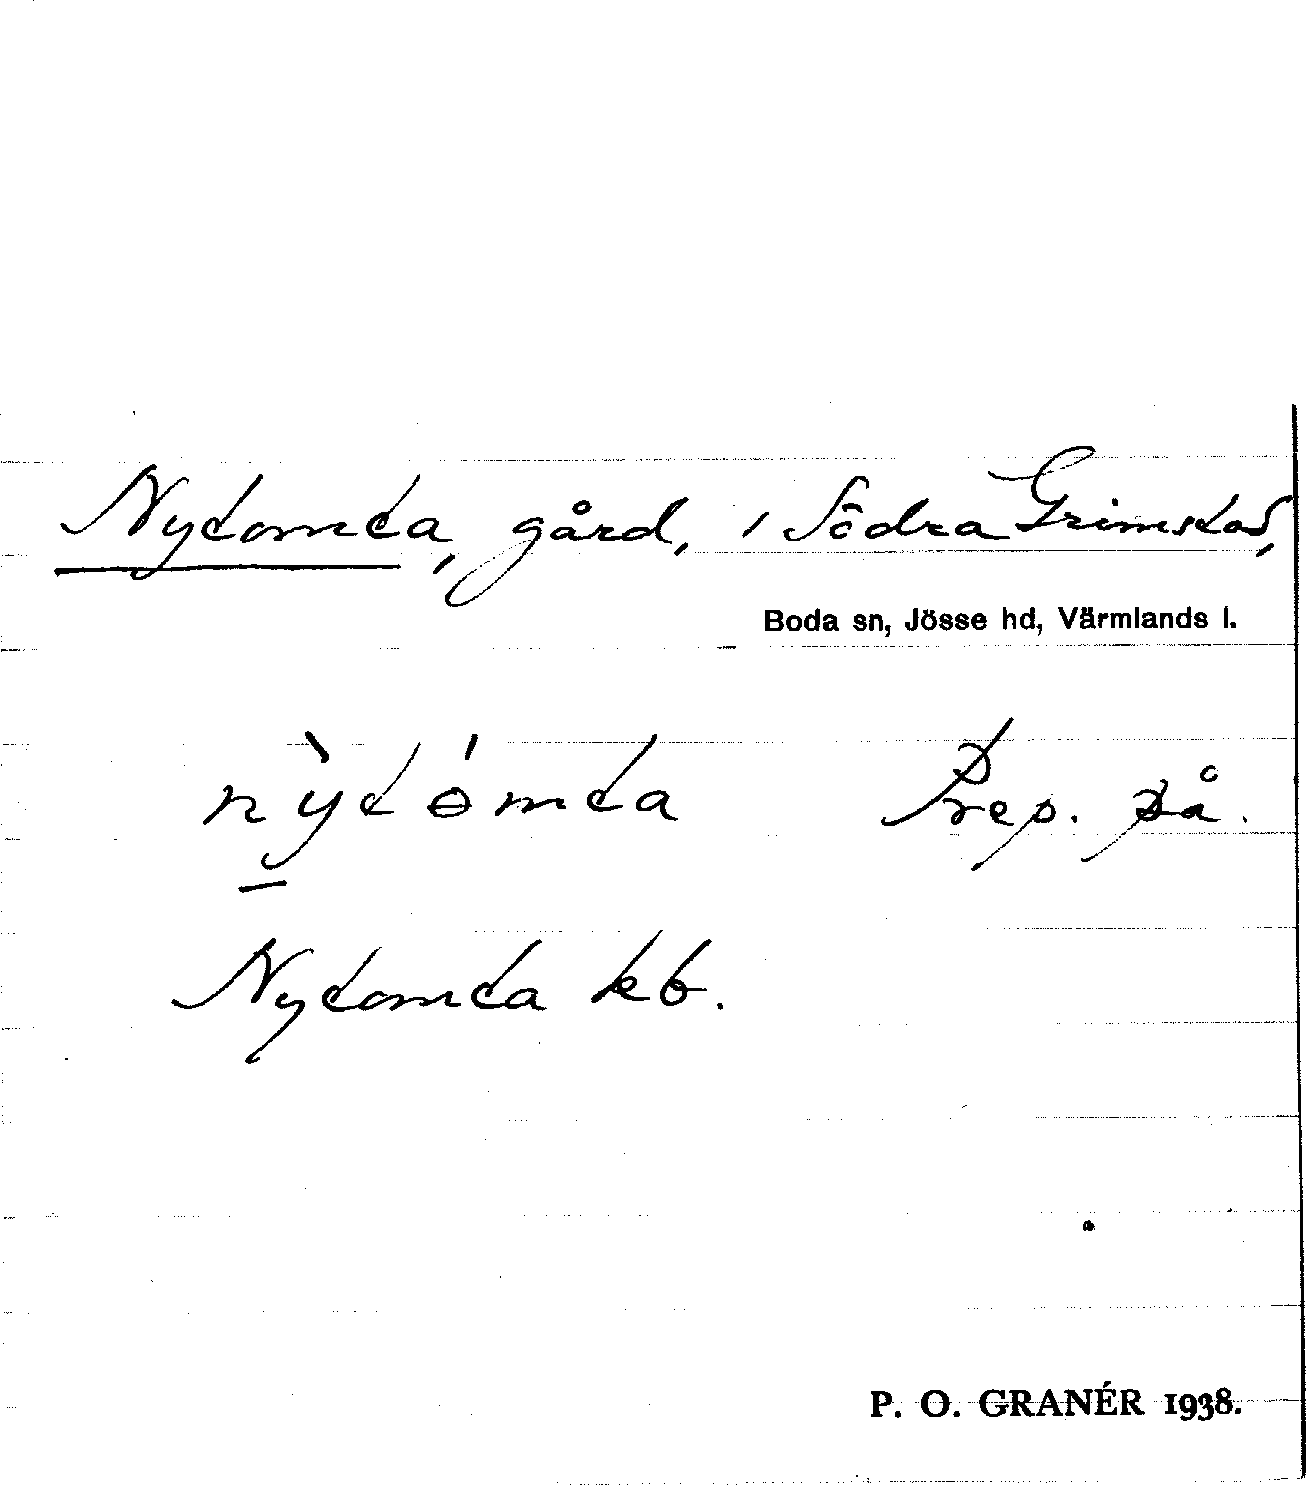 Nytomta, gård, i Södra Grimstad,
Boda sn, Jösse hd, Värmlands l.
nỳtɵ́mta Prep. på.
Nytomta kb.
P. O. GRANÉR 1938.